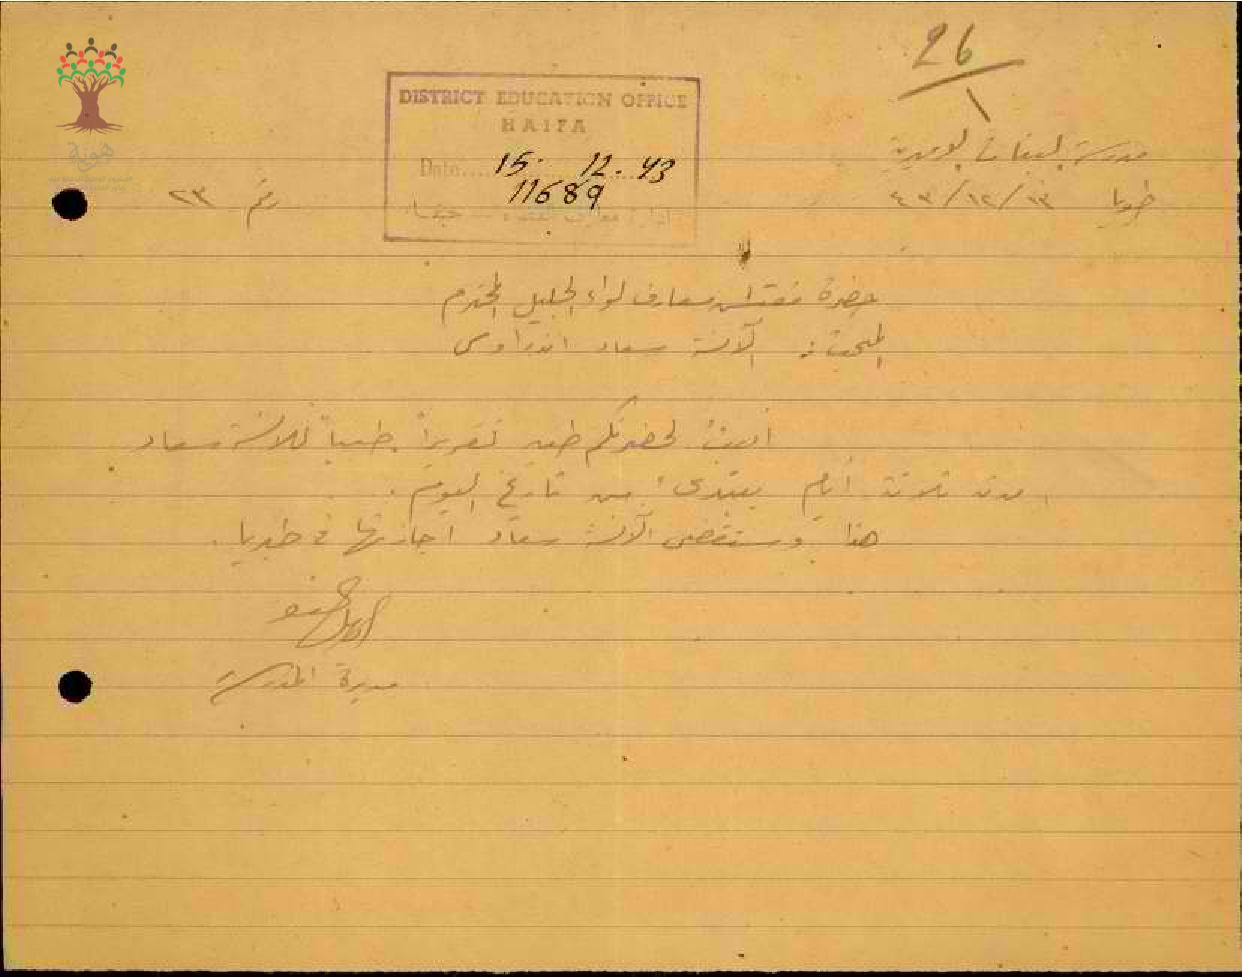 26
1
DISTRICT EDUCATION OFFICE
HAIFA
Date.... 15. 12. 43
11689
ادارة معارف اللواء — حيفا
مدرسة البنات الاميرية
طبريا ١٣/١٢/٤٣
رقم ٢٣
حضرة مفتش معارف لواء الجليل المحترم
المبحث: الآنسة سعاد اندراوس
لحضرتكم طيه تقريراً طبياً للآنسة سعاد
مدة ثلاثة أيام يبتدئ من تاريخ اليوم.
هذا وستقضي الآنسة سعاد اجازتها في طبريا.
مديرة المدرسة
هوية